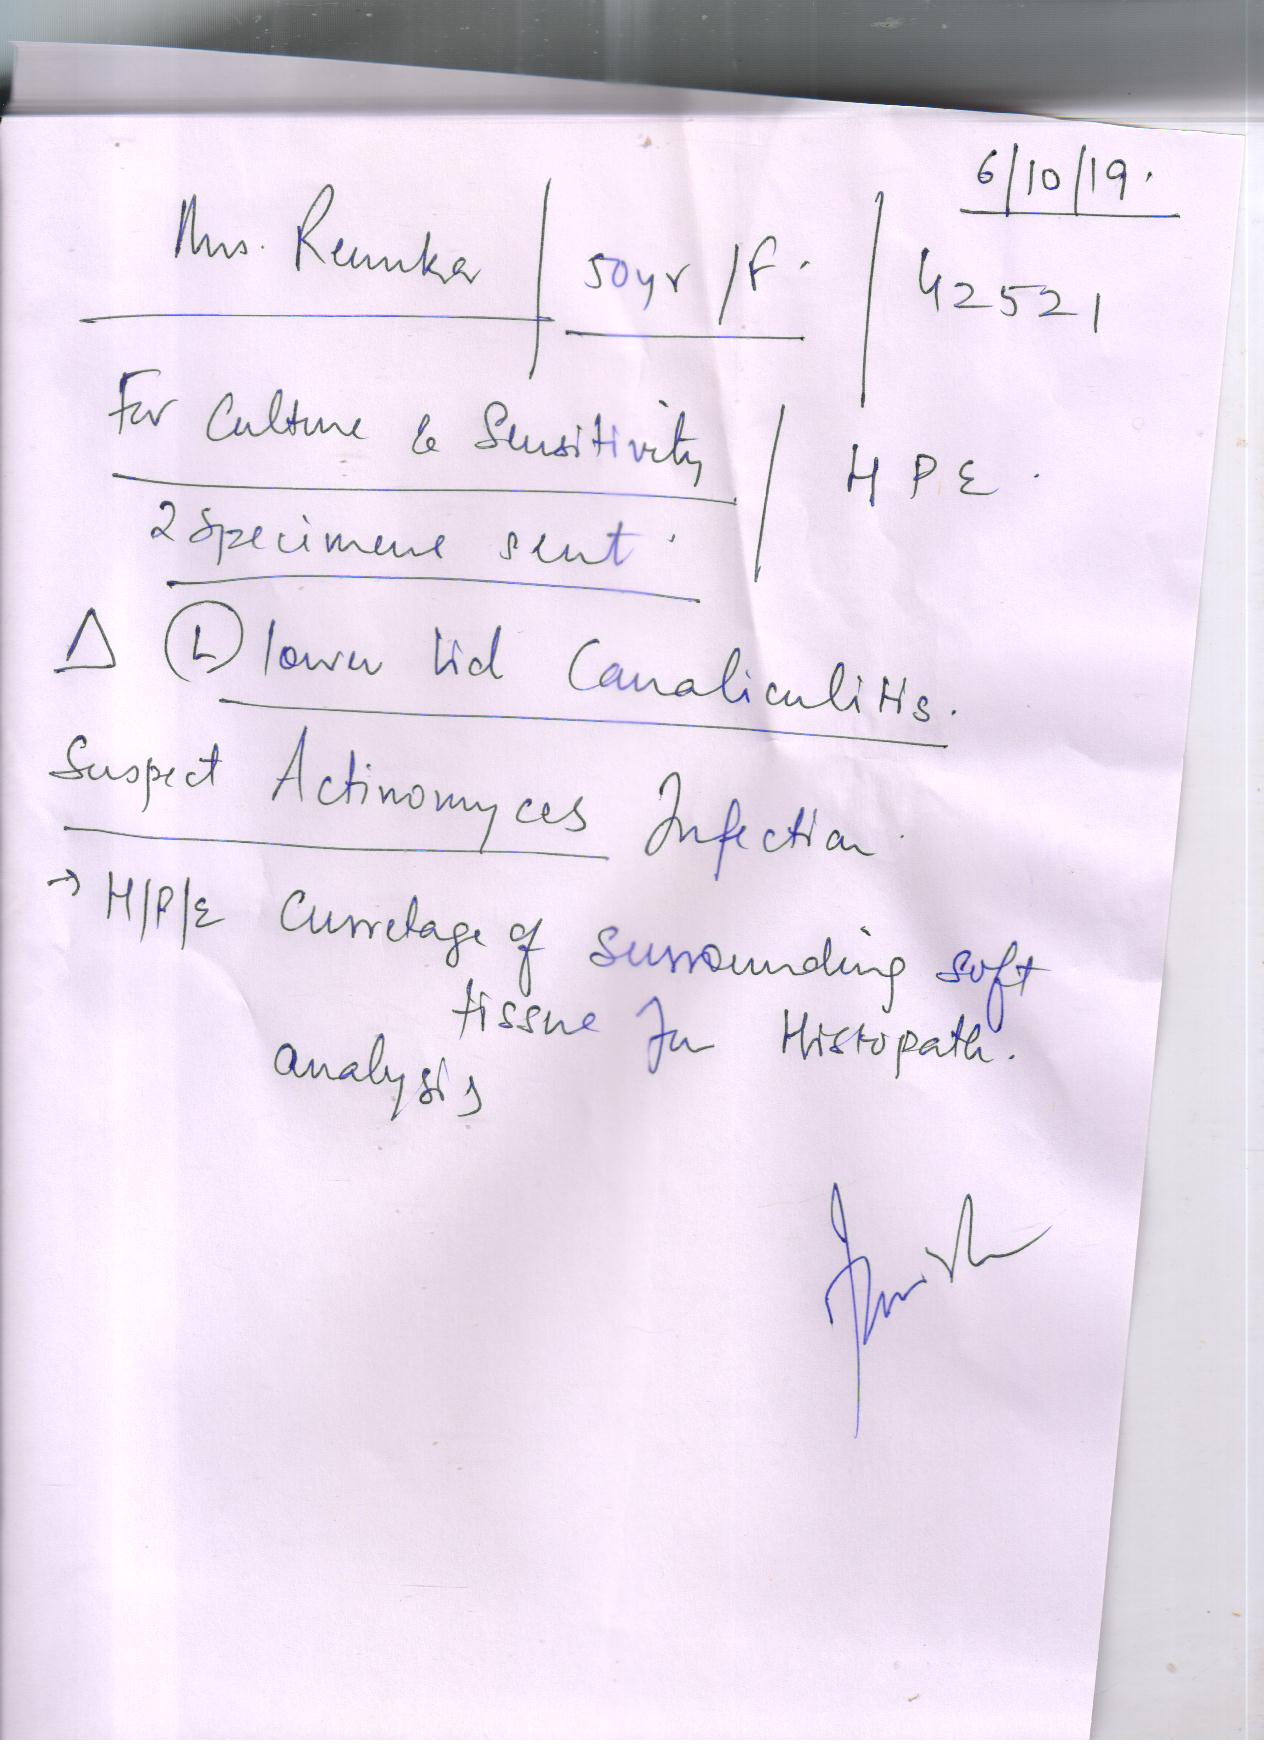 6/10/19.
Mrs. Renuka / 50yr /F. / 42521
For Culture & Sensitivity / HPE.
2 Specimens sent.
Δ Ⓛ lower lid Canaliculitis.
Suspect Actinomyces Infection.
→ H/P/E Curretage of surrounding soft
tissue for Histopath.
analysis